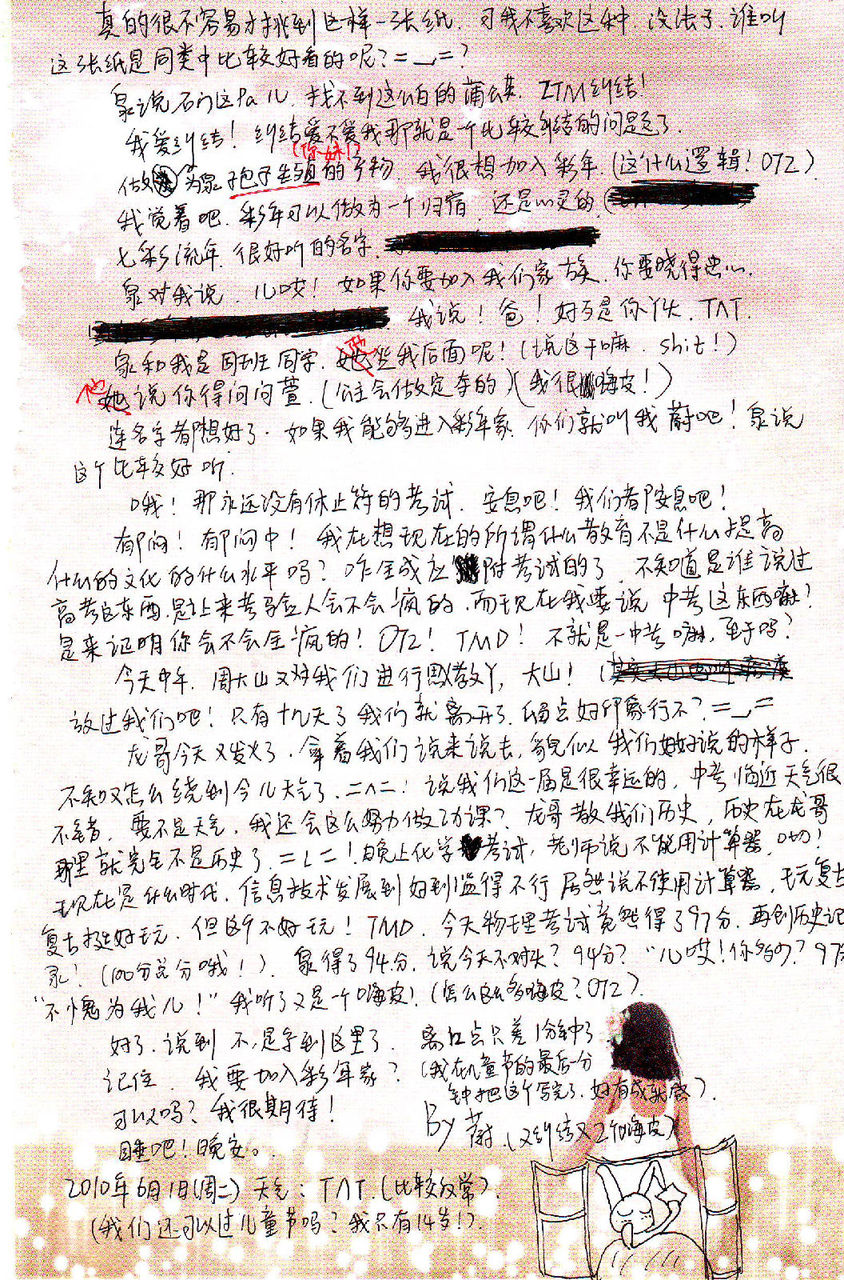 真的很不容易才挑到这样一张纸. 可我不喜欢这种. 没法子. 谁叫
这张纸是同类中比较好看的呢?=_=?
泉说石门这Pa儿. 找不到这么白的蒲公英. ZTM纠结!
我爱纠结! 纠结爱不爱我那就是个比较纠结的问题了.
(你妹!)
做为泉孢子生殖的产物. 我很想加入彩年. (这什么逻辑! OTZ).
我觉着吧. 彩年可以做为一个归宿. 还是心灵的. (
七彩流年. 很好听的名字.
泉对我说. 儿哎! 如果你要加入我们家族. 你要晓得忠心.
我说! 爸! 好歹是你丫头. TAT.
泉和我是同班同学. 他坐我后面呢! (说这干嘛. shit!)
他她说你得问问萱. (公主会做定夺的) (我很嗨皮!)
连名字都想好了. 如果我能够进入彩年家. 你们就叫我蔚吧! 泉说
这个比较好听.
哦! 那永远没有休止符的考试. 安息吧! 我们都安息吧!
郁闷! 郁闷中! 我在想现在的所谓什么教育不是什么提高
什么的文化的什么水平吗? 咋全成应附考试的了. 不知道是谁说过
高考这东西. 是上来考验人会不会疯的. 而现在我要说 中考这东西嘛?
是来证明你会不会全疯的! OTZ! TMD! 不就是一中考嘛. 至于吗?
今天中午. 周大山又对我们进行思教丫, 大山! (
放过我们吧! 只有十九天了我们就离开了. 留点好印象行不? =_=
龙哥今天又发火了. 拿着我们说来说去, 貌似我们好好说的样子.
不知又怎么绕到今儿天气了. =^=! 说我们这一届是很幸运的, 中考临近天气很
不错. 要不是天气. 我还会这么努力做功课? 龙哥教我们历史, 历史在龙哥
那里就完全不是历史了. =L=! 晚上化学考试, 老师说不能用计算器. 切!
现在是什么时代. 信息技术发展到好到逼得不行 居然说不使用计算器, 玩复古
复古挺好玩. 但这个不好玩! TMD. 今天物理考试竟然得了97分. 再创历史记
录! (100分总分哦!). 泉得了94分. 说今天不对头? 94分? "儿哎! 你多少? 97分
"不愧为我儿!" 我听了又是一个嗨皮! (怎么这么多嗨皮? OTZ).
好了. 说到 不, 是写到这里了. 离12点只差1分钟了
记住. 我要加入彩年家? (我在儿童节的最后一分
钟把这个写完了. 好有成就感).
可以吗? 我很期待!
By 蔚 (又纠结又嗨皮)
睡吧! 晚安。.
2010年6月1日(周二) 天气: TAT. (比较反常).
(我们还可以过儿童节吗? 我只有14岁!).